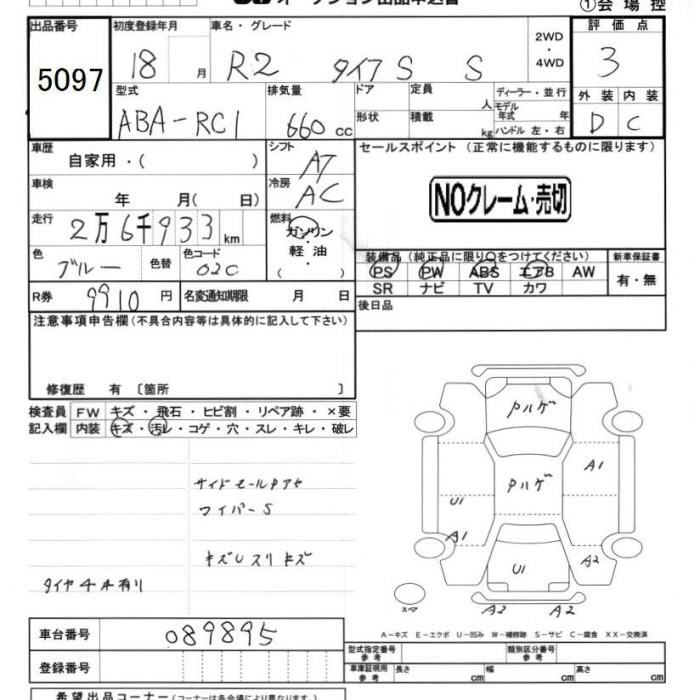 ①会場控
出品番号 初度登録年月 車名・グレード 2WD ・ 4WD 評価点
5097 18 月 R2 タイプS S 3
型式 排気量 ドア 定員 人 ディーラー・並行 外装 内装
ABA-RC1 660 cc 形状 積載 kg モデル年式 年 ハンドル 左・右 D C
車歴 自家用・( ) シフト AT セールスポイント(正常に機能するものに限ります)
車検 年 月( 日) 冷房 AC NOクレーム・売切
走行 2万6千933 km 燃料 ガソリン・軽油 ・( )
色 ブルー 色替 色コード 02C 装備品(純正品に限り○をつけてください) 新車保証書
PS PW ABS エアB AW 有・無
SR ナビ TV カワ
R券 9910 円 名変通知期限 月 日 後日品
注意事項申告欄(不具合内容等は具体的に記入して下さい)
修復歴 有 〔箇所 〕
検査員 FW キズ・飛石・ヒビ割・リペア跡・×要
記入欄 内装 キズ・汚レ・コゲ・穴・スレ・キレ・破レ
Pハゲ
A1
サイドモールPアセ Pハゲ
ワイパーS U1
A1
キズUスリキズ A2
タイヤ4本有り U1
スペア A2 A2
A-キズ E-エクボ U-凹み W-補修跡 S-サビ C-腐食 XX-交換済
車台番号 089895
登録番号
型式指定番号 参考 類別区分番号 参考
車庫証明用 参考 長さ cm 幅 cm 高さ cm
希望出品コーナー(コーナー名は各会場により異なります)